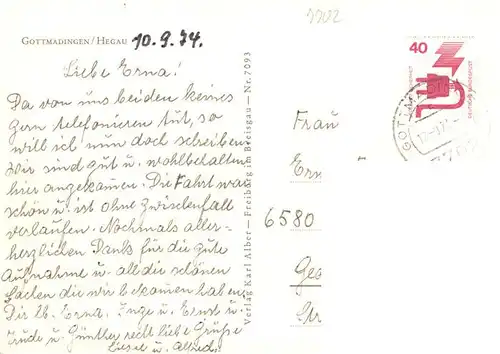 7702
GOTTMADINGEN / HEGAU 10.9.74.
Liebe Erna!
Da von uns beiden keines
gern telefonieren tut, so
will ich nun doch schreiben
Wir sind gut u. wohlbehalten
hier angekommen. Die Fahrt war
schön u. ist ohne Zwischenfall
verlaufen. Nochmals aller-
herzlichen Dank für die gute
Aufnahme u. all die schönen
Sachen die wir bekommen haben.
Dir lb. Erna, Inge u. Ernst u.
Trude u. Günther recht liebe Grüße
Liesel u. Alfred.
Verlag Karl Alber – Freiburg im Breisgau – Nr. 7093
40
DEUTSCHE BUNDESPOST
GOTTMA
Frau
Ern
6580
Str